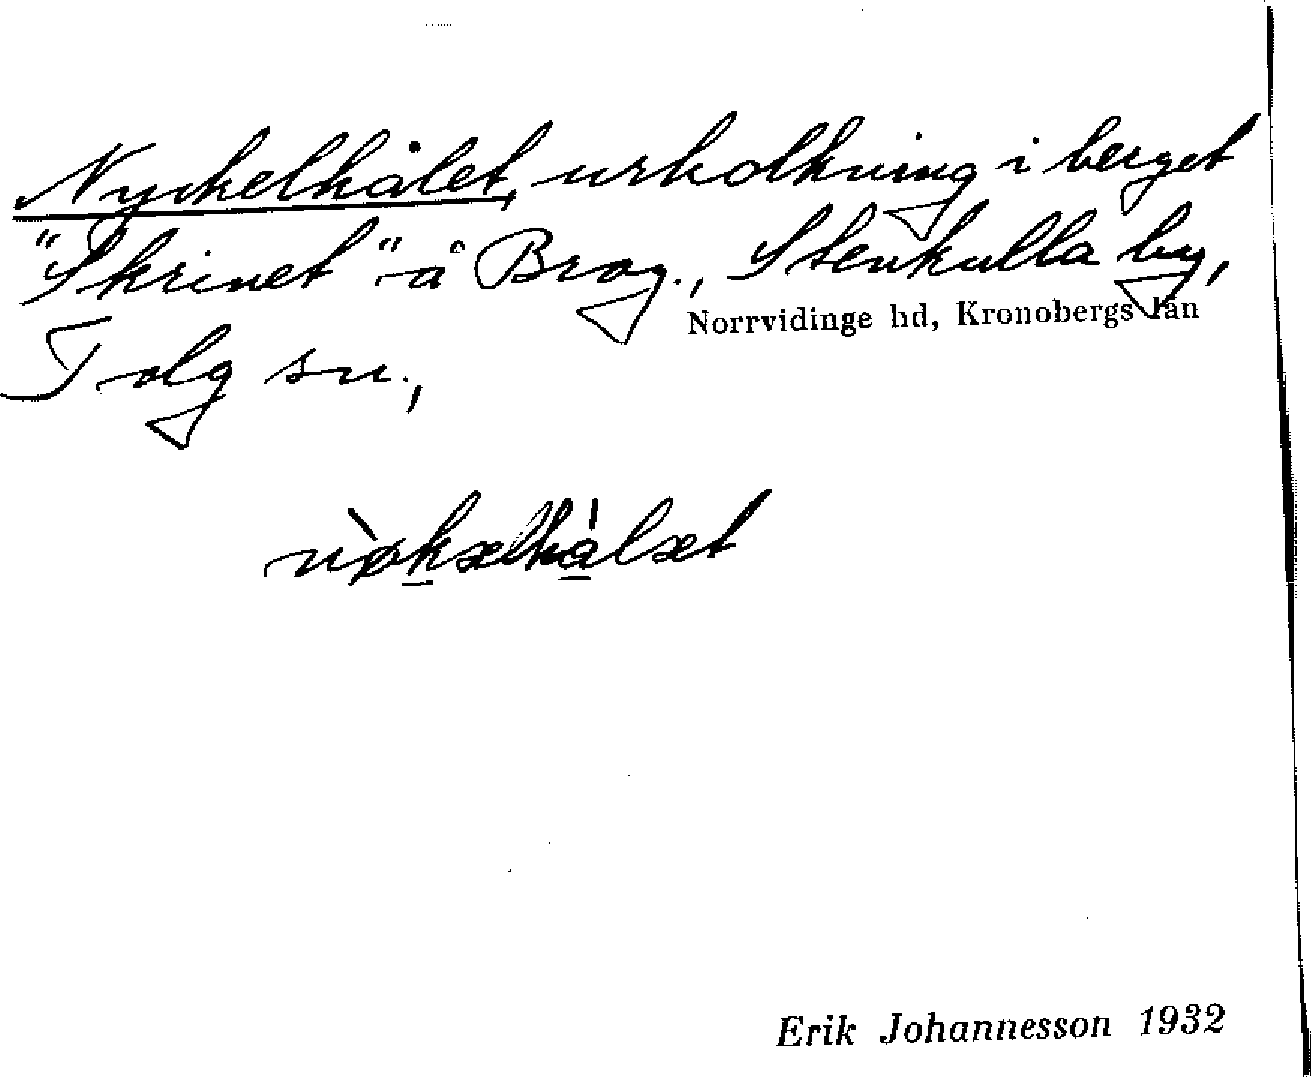 Nyckelhålet, urholkning i berget
"Skrinet" å Brog., Stenkulla by,
Norrvidinge hd, Kronobergs län
Tolg sn.,
Erik Johannesson 1932